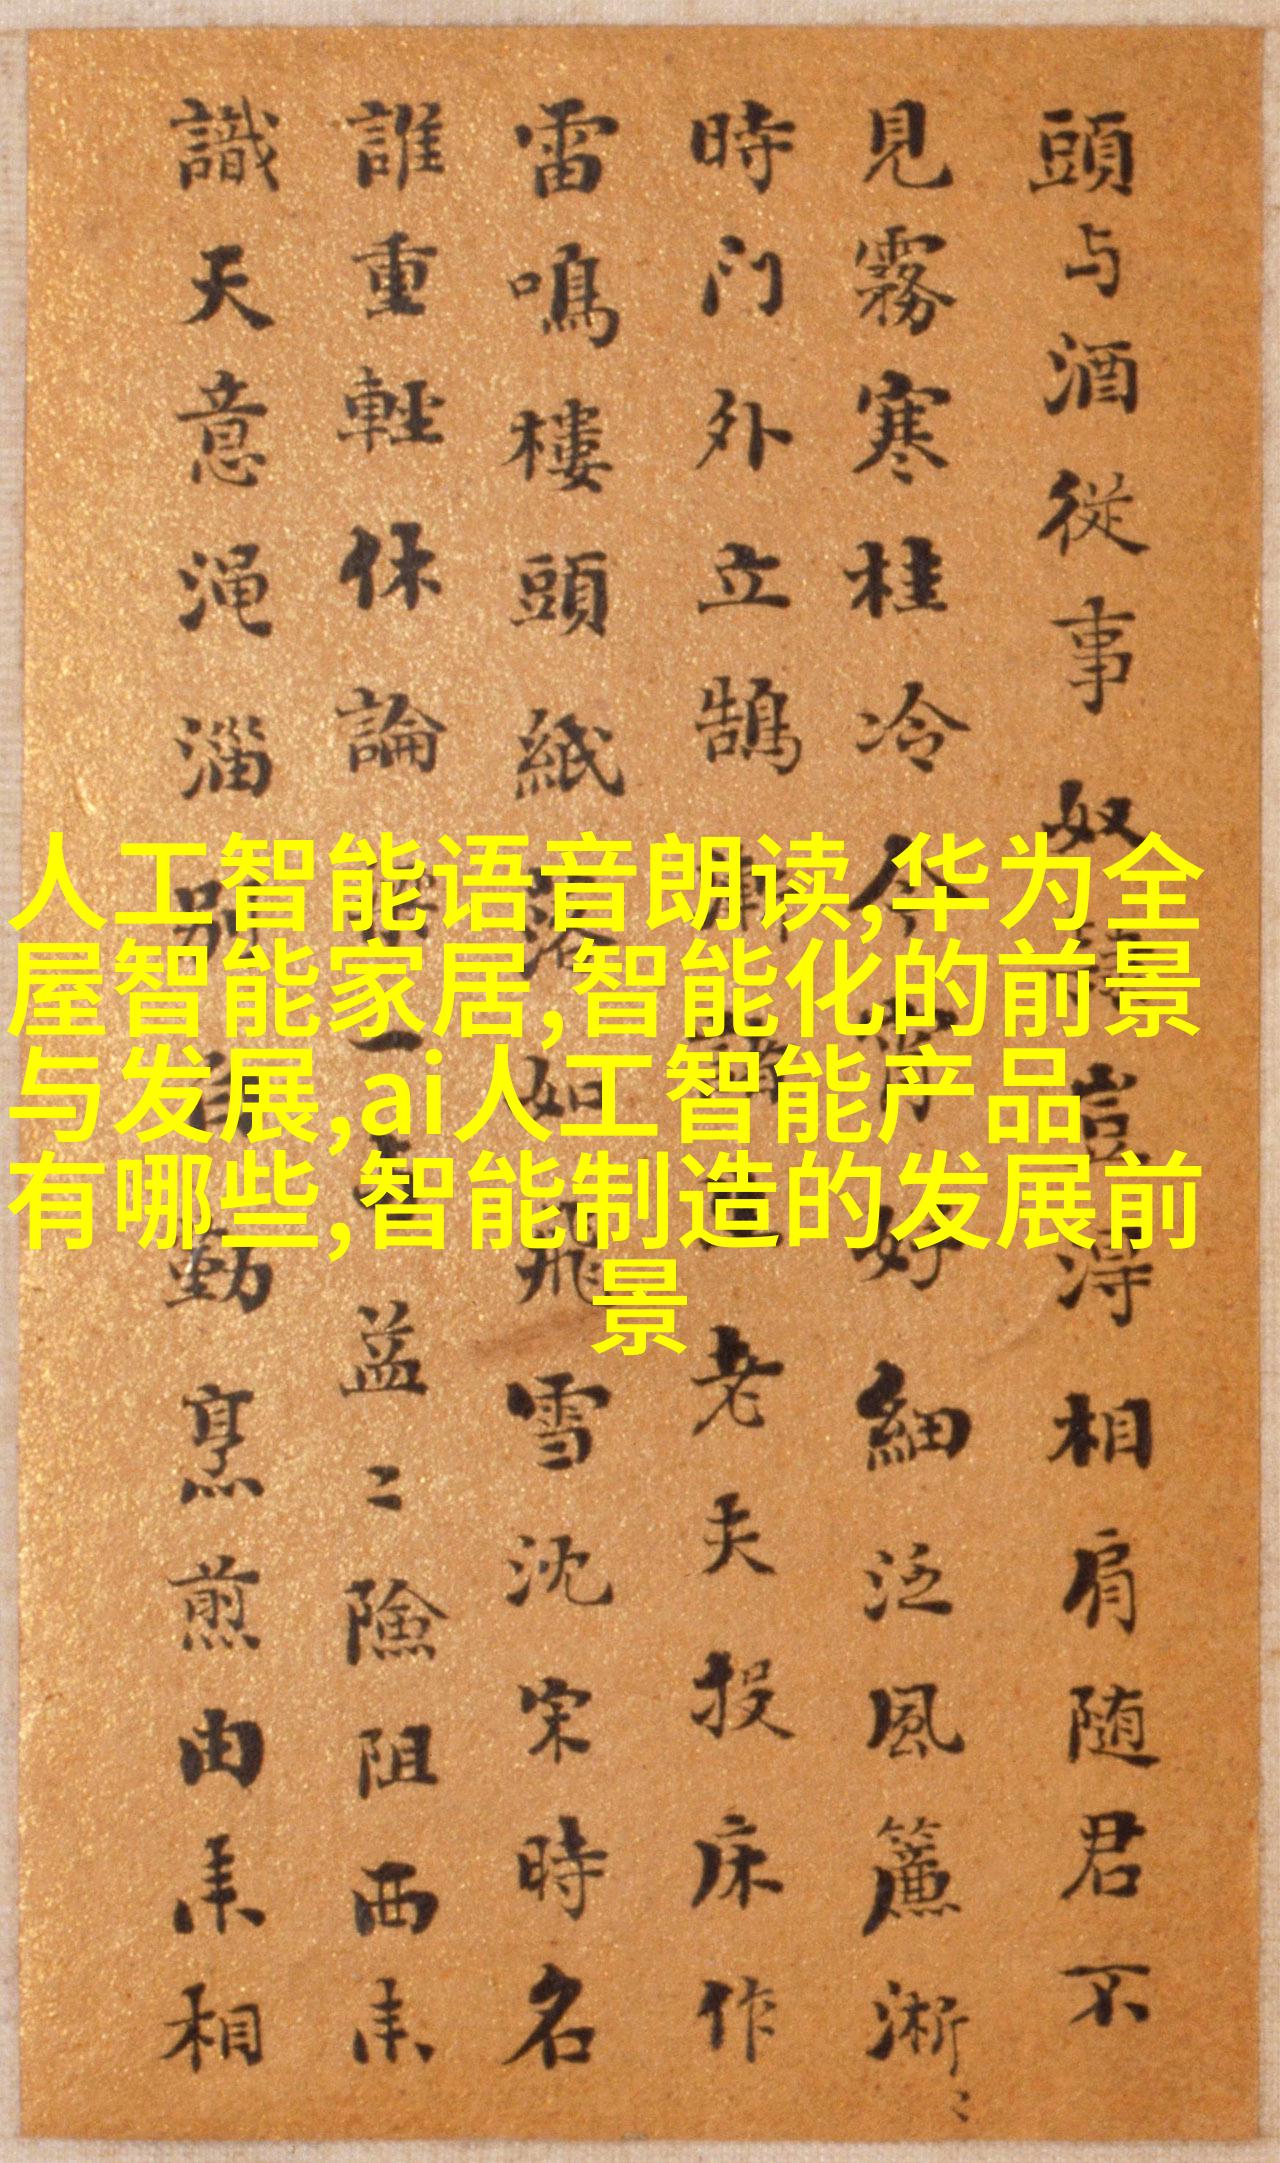 頭与酒従事奴豈得相肩随君不
見霧寒桂冷今宵好細泛風簾淅〻
時门外立鵠老夫投床作
雷鳴樓頭紙落如飛雪沈宋時名
誰重輕休論一益〻險阻西来
識天意渑淄別自勤烹煎由来相
人工智能语音朗读,华为全
屋智能家居,智能化的前景
与发展,ai人工智能产品
有哪些,智能制造的发展前
景